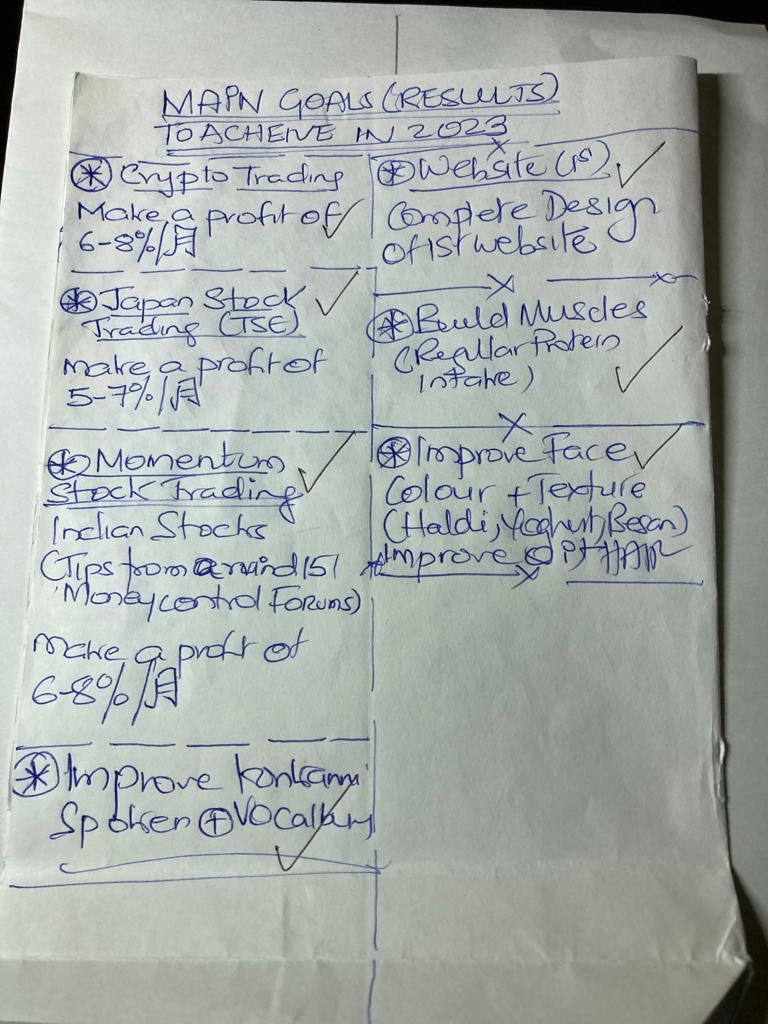 MAIN GOALS (RESULTS)
TO ACHEIVE IN 2023
Crypto Trading
Make a profit of
6-8%/月
Japan Stock
Trading (TSE)
make a profit of
5-7%/月
Momentum
Stock Trading
Indian Stocks
(Tips from anand151
Moneycontrol Forums)
make a profit of
6-8%/月
Improve Konkanni
Spoken + Vocalbury
Website (1st)
Complete Design
of 1st website
Build Muscles
(Regular Protein
intake)
Improve Face
Colour + Texture
(Haldi, Yoghurt, Besan)
Improve HAIR